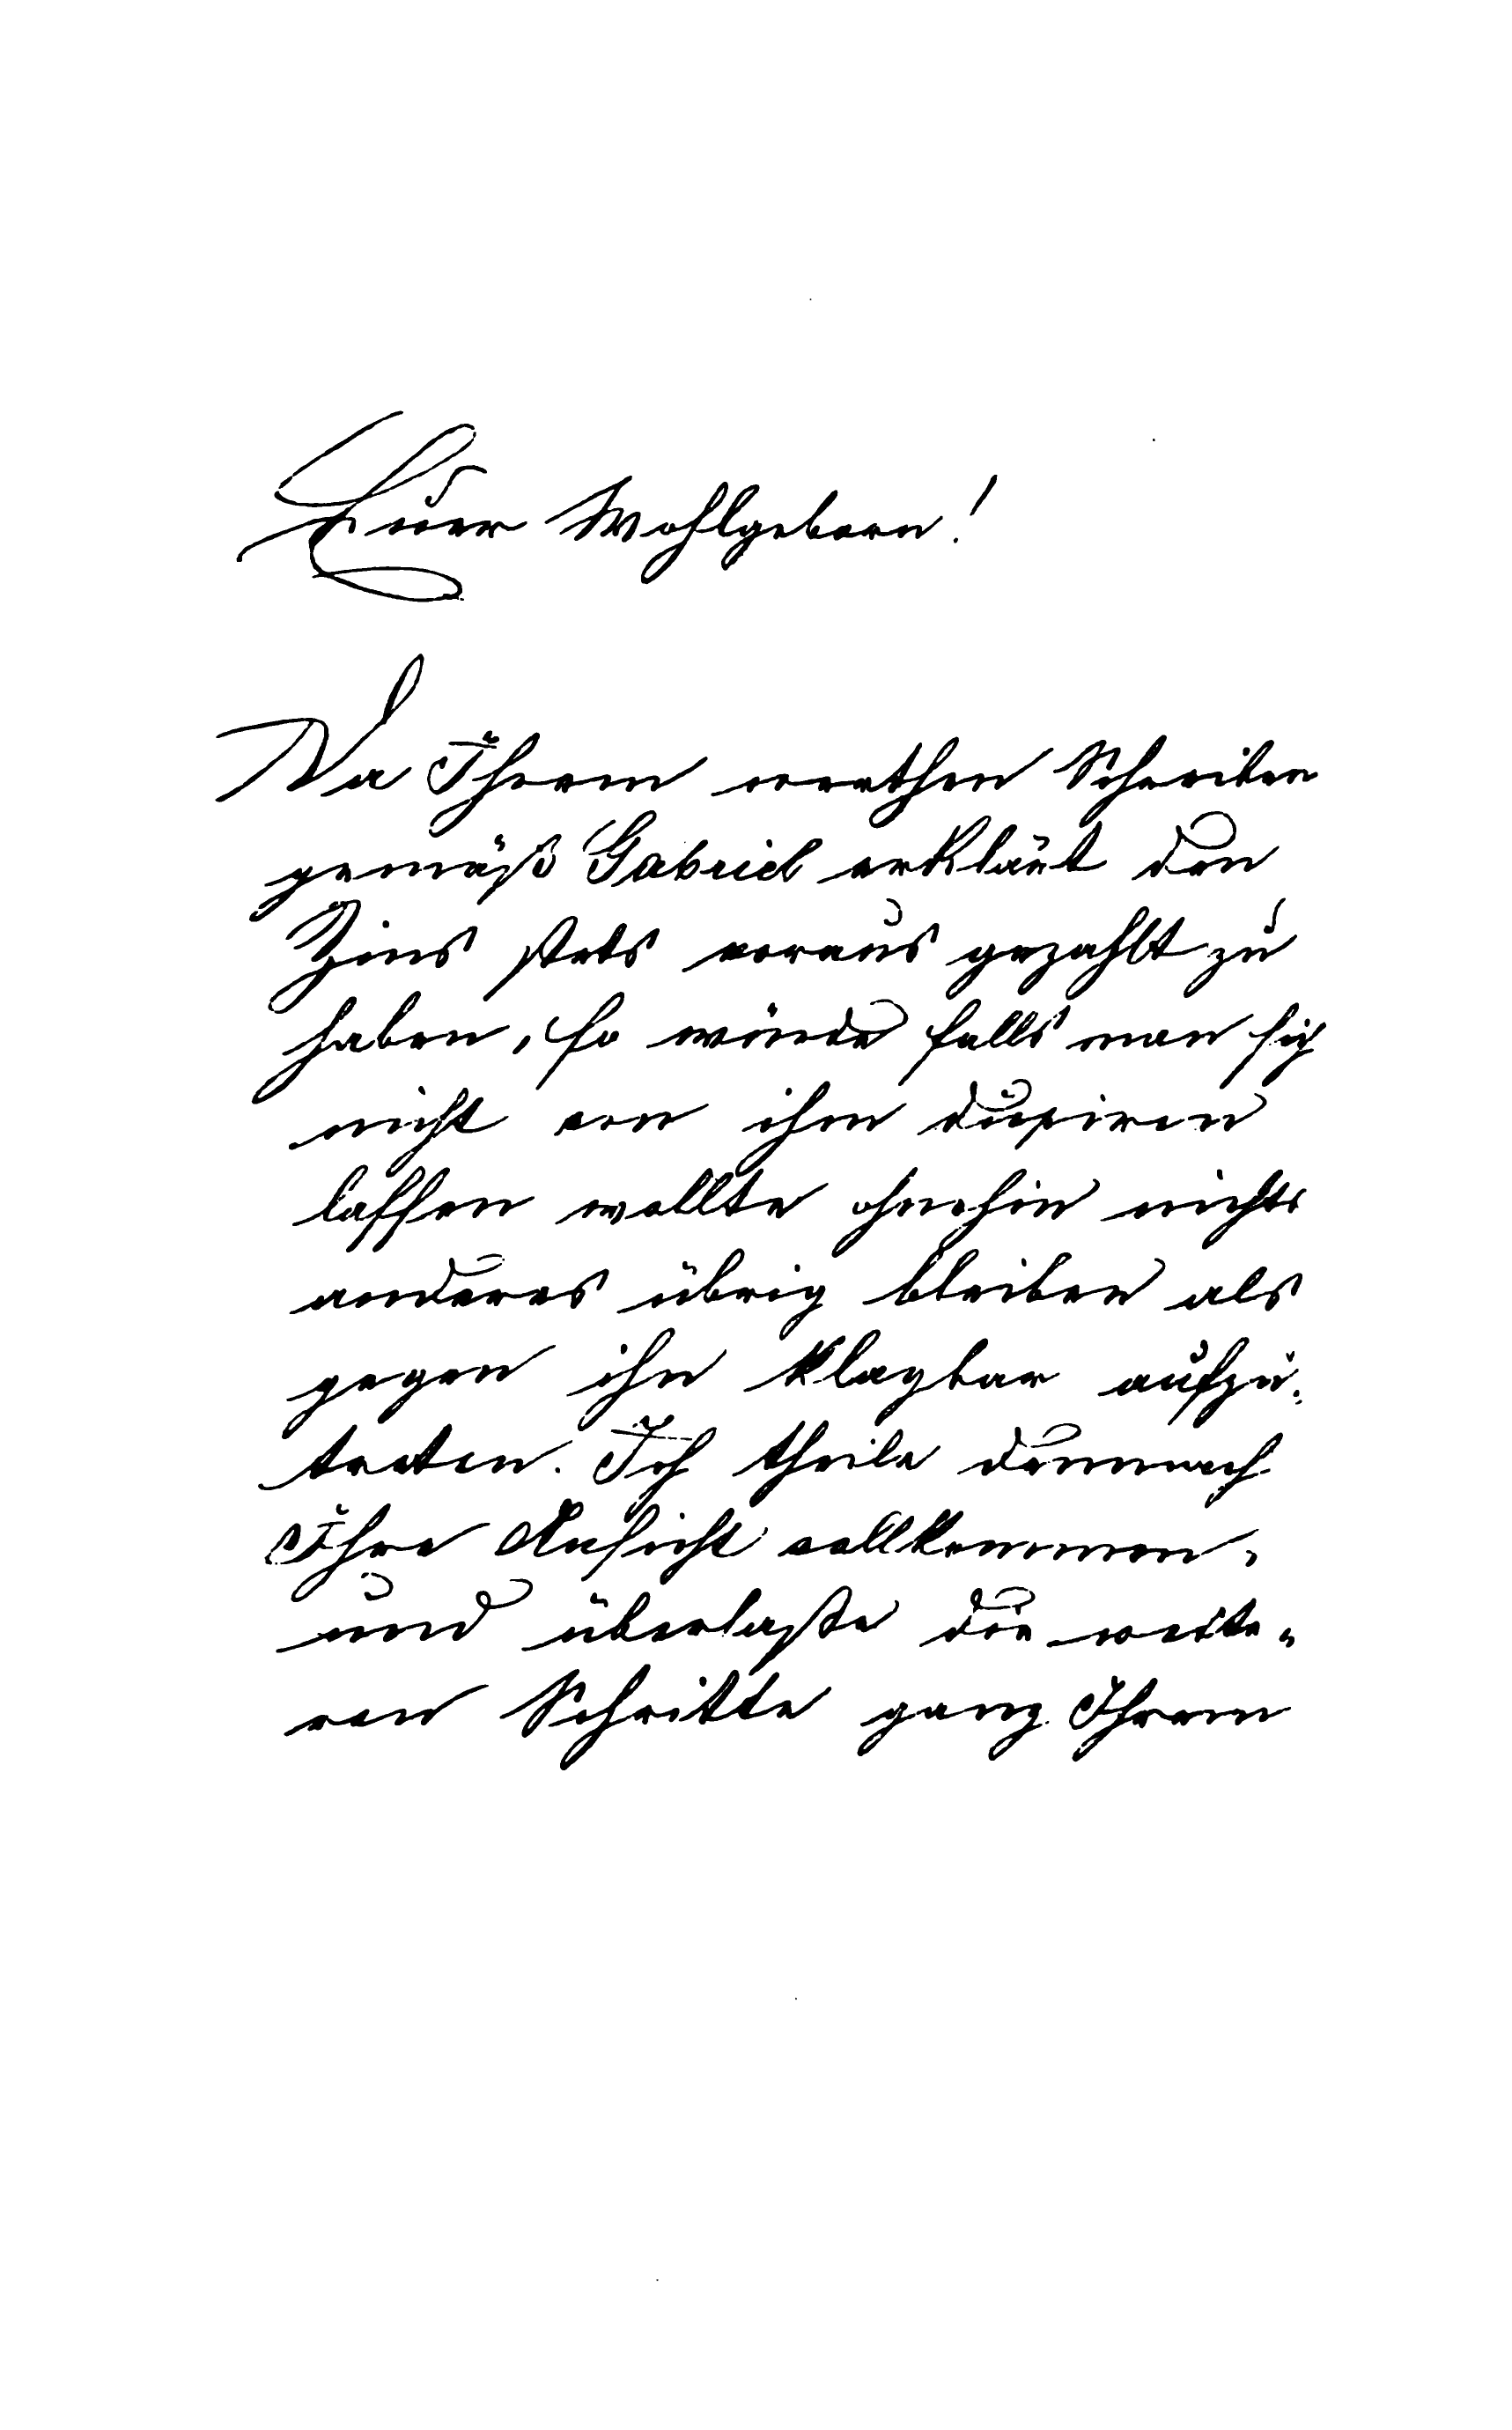 Euer Wohlgeborn!
Da Ihrem werthen Schreiben
gemäß Gabriel erklärt den
Zins stets voraus gezahlt zu
haben, so würde falls man sich
nicht von ihm dupiren
lassen wollte ohnehin nichts
anderes übrig bleiben als
gegen ihn klagbar aufzu-
treten. Ich theile demnach
Ihre Ansicht vollkommen,
und überlaße die weite-
ren Schritte ganz Ihrem